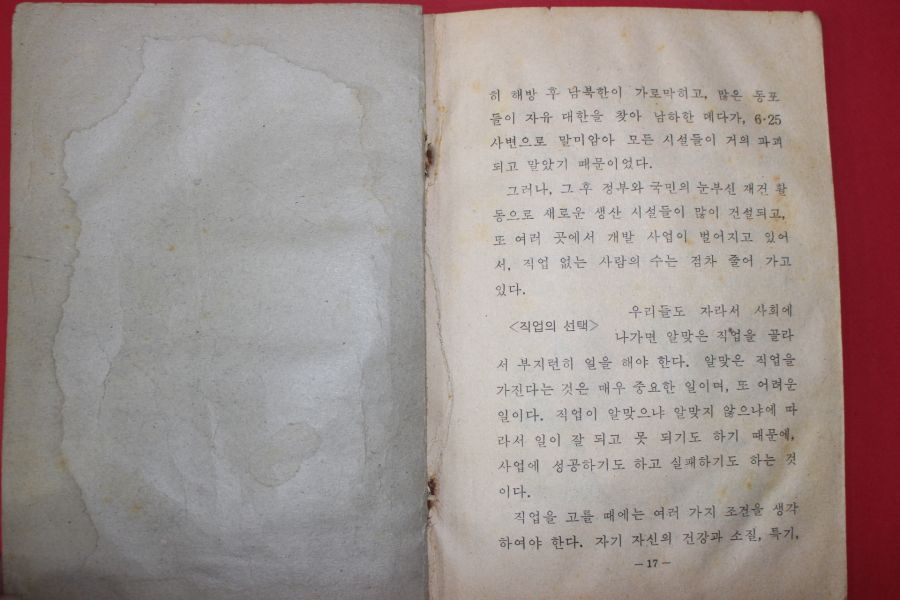 히 해방 후 남북한이 가로막히고, 많은 동포
들이 자유 대한을 찾아 남하한 데다가, 6·25
사변으로 말미암아 모든 시설들이 거의 파괴
되고 말았기 때문이었다.
그러나, 그 후 정부와 국민의 눈부신 재건 활
동으로 새로운 생산 시설들이 많이 건설되고,
또 여러 곳에서 개발 사업이 벌어지고 있어
서, 직업 없는 사람의 수는 점차 줄어 가고
있다.
<직업의 선택>
우리들도 자라서 사회에
나가면 알맞은 직업을 골라
서 부지런히 일을 해야 한다. 알맞은 직업을
가진다는 것은 매우 중요한 일이며, 또 어려운
일이다. 직업이 알맞으냐 알맞지 않으냐에 따
라서 일이 잘 되고 못 되기도 하기 때문에,
사업에 성공하기도 하고 실패하기도 하는 것
이다.
직업을 고를 때에는 여러 가지 조건을 생각
하여야 한다. 자기 자신의 건강과 소질, 특기,
— 17 —